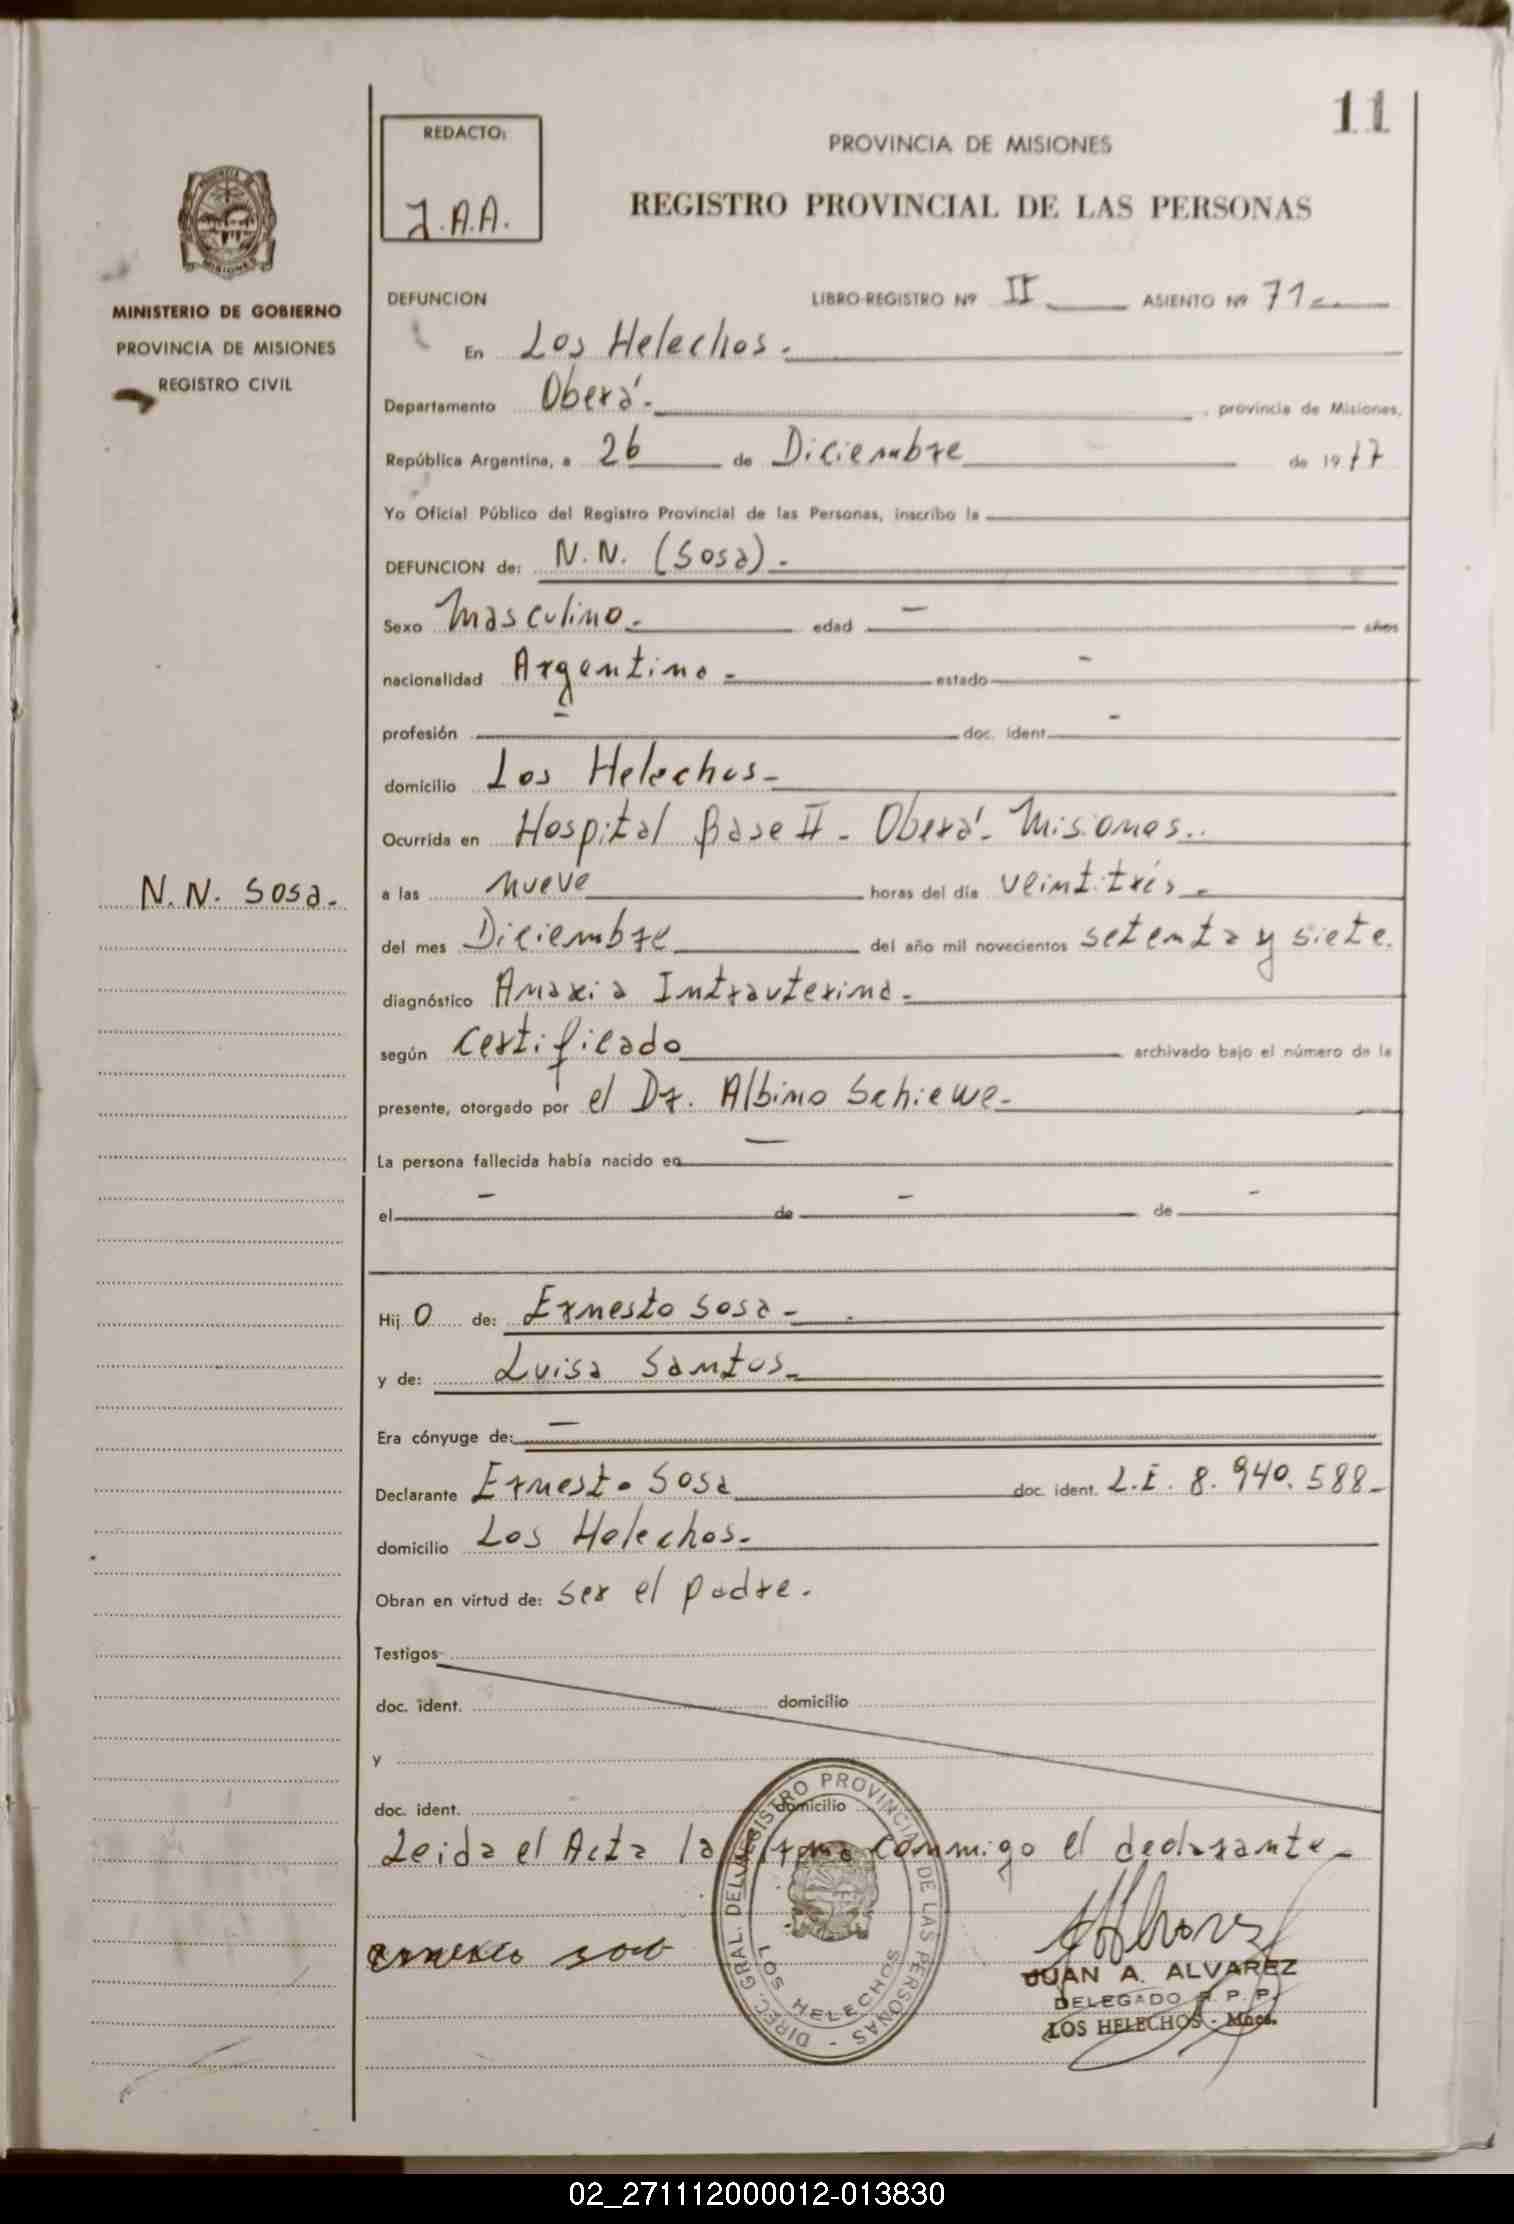 11
REDACTO:
J.A.A.
PROVINCIA DE MISIONES
REGISTRO PROVINCIAL DE LAS PERSONAS
PROVINCIA DE
MISIONES
MINISTERIO DE GOBIERNO
PROVINCIA DE MISIONES
REGISTRO CIVIL
DEFUNCION LIBRO-REGISTRO Nº II ASIENTO Nº 71
En Los Helechos.
Departamento Oberá. , provincia de Misiones,
República Argentina, a 26 de Diciembre de 1977
Yo Oficial Público del Registro Provincial de las Personas, inscribo la
DEFUNCION de: N.N. (Sosa).
Sexo Masculino. edad — años
nacionalidad Argentino - estado -
profesión - doc. ident. -
domicilio Los Helechos -
Ocurrida en Hospital Base II - Oberá - Misiones.
N.N. Sosa.
a las nueve horas del día veintitrés -
del mes Diciembre del año mil novecientos setenta y siete.
diagnóstico Anoxia Intrauterina -
según Certificado archivado bajo el número de la
presente, otorgado por el Dr. Albino Schiewe -
La persona fallecida había nacido en —
el - de - de -
Hij o de: Ernesto Sosa -
y de: Luisa Santos -
Era cónyuge de: —
Declarante Ernesto Sosa doc. ident. L.E. 8.940.588 -
domicilio Los Helechos.
Obran en virtud de: ser el padre.
Testigos
doc. ident. domicilio
y
doc. ident. domicilio
Leida el Acta la firma conmigo el declarante -
ernesto sosa
DIREC. GRAL. DEL REGISTRO PROVINCIAL DE LAS PERSONAS -
LOS HELECHOS
JUAN A. ALVAREZ
DELEGADO R. P. P.
LOS HELECHOS - Mnes.
02_271112000012-013830